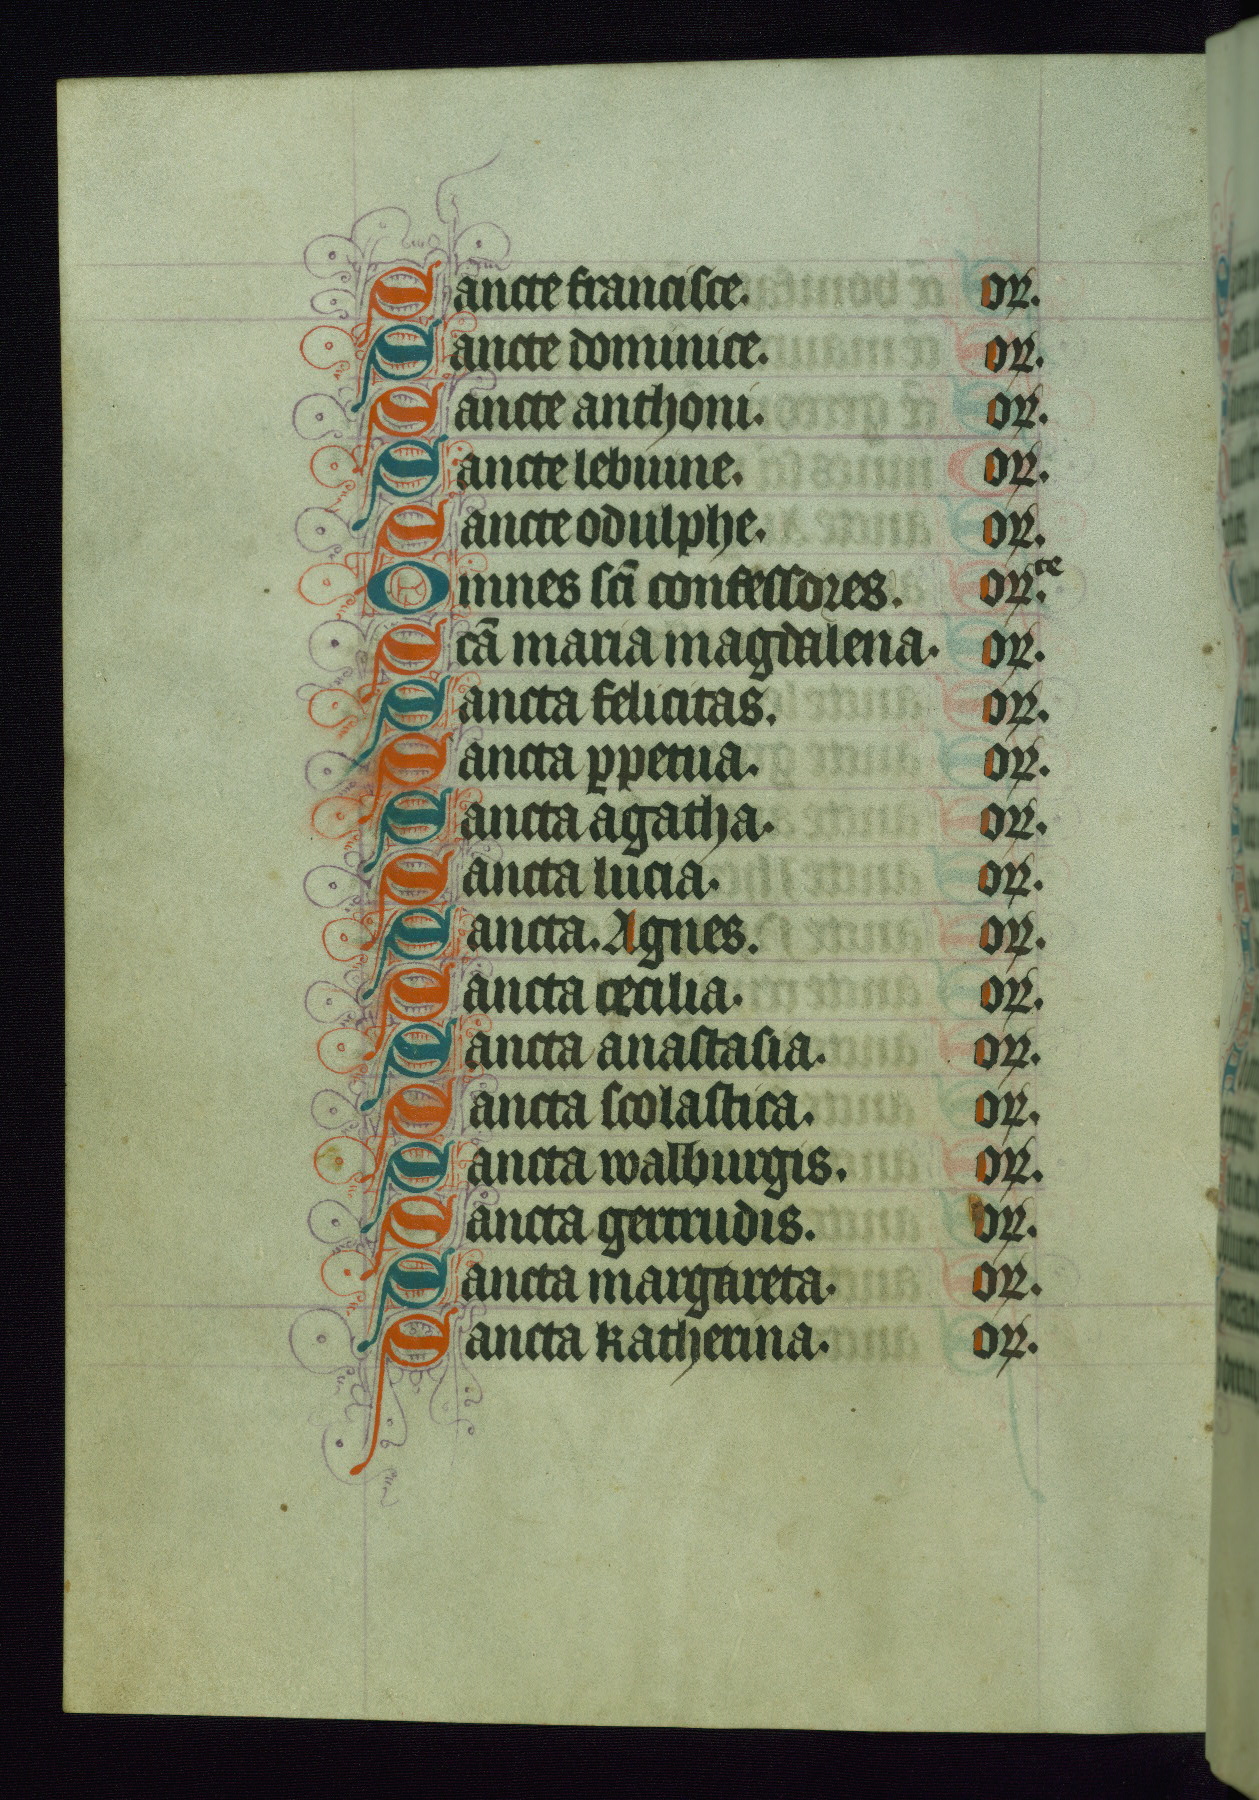 Sancte francisce. or.
Sancte dominice. or.
Sancte anthoni. or.
Sancte lebuine. or.
Sancte odulphe. or.
Omnes sc̃i confessores. or.te
Scã maria magdalena. or.
Sancta felicitas. or.
Sancta ꝑpetua. or.
Sancta agatha. or.
Sancta lucia. or.
Sancta. Agnes. or.
Sancta cecilia. or.
Sancta anastasia. or.
Sancta scolastica. or.
Sancta walburgis. or.
Sancta gertrudis. or.
Sancta margareta. or.
Sancta katherina. or.